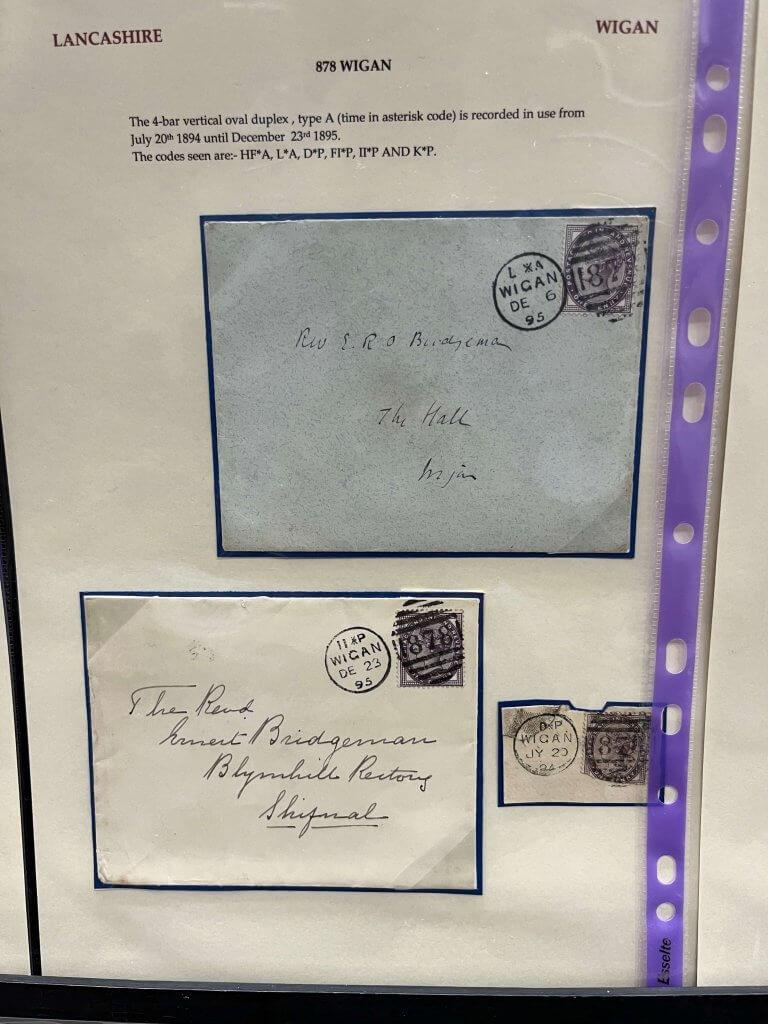 LANCASHIRE
WIGAN
878 WIGAN
The 4-bar vertical oval duplex , type A (time in asterisk code) is recorded in use from
July 20th 1894 until December 23rd 1895.
The codes seen are:- HF*A, L*A, D*P, FI*P, II*P AND K*P.
L *A
WIGAN
DE 6
95
187
Rev E. R O Bridgeman
The Hall
Wigan
II*P
WIGAN
DE 23
95
878
The Revd
Ernest Bridgeman
Blymhill Rectory
Shifnal
D*P
WIGAN
JY 20
94
87
Esselte